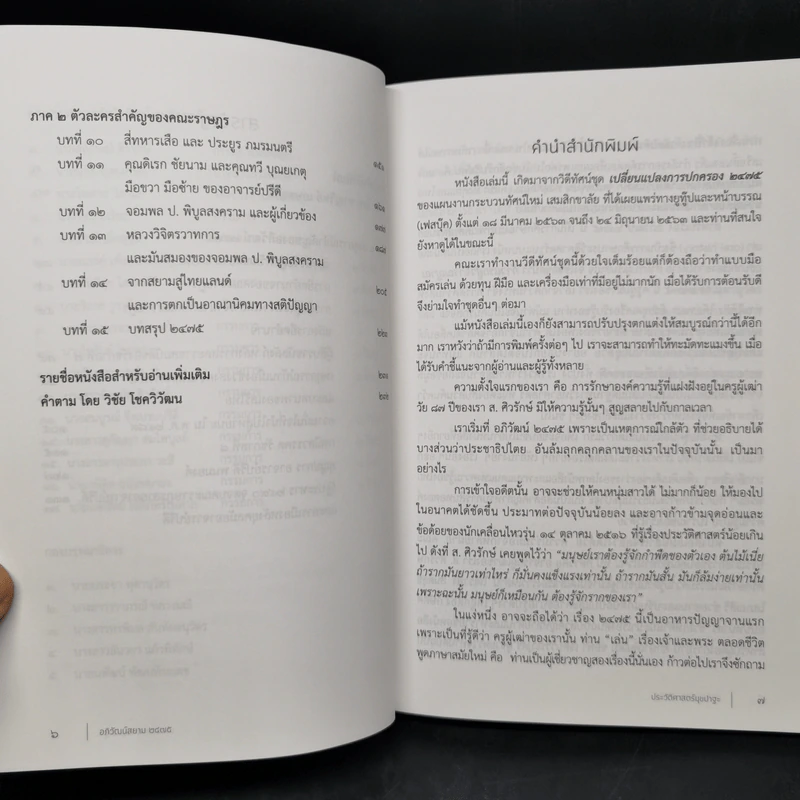 ภาค ๒ ตัวละครสำคัญของคณะราษฎร
บทที่ ๑๐ สี่ทหารเสือ และ ประยูร ภมรมนตรี
บทที่ ๑๑ คุณดิเรก ชัยนาม และคุณทวี บุณยเกตุ ๑๕๑
มือขวา มือซ้าย ของอาจารย์ปรีดี
บทที่ ๑๒ จอมพล ป. พิบูลสงคราม และผู้เกี่ยวข้อง ๑๖๑
บทที่ ๑๓ หลวงวิจิตรวาทการ
และมันสมองของจอมพล ป. พิบูลสงคราม
บทที่ ๑๔ จากสยามสู่ไทยแลนด์ ๒๐๕
และการตกเป็นอาณานิคมทางสติปัญญา
บทที่ ๑๕ บทสรุป ๒๔๗๕
รายชื่อหนังสือสำหรับอ่านเพิ่มเติม
คำตาม โดย วิชัย โชควิวัฒน
๖ อภิวัฒน์สยาม ๒๔๗๕
คำนำสำนักพิมพ์
หนังสือเล่มนี้ เกิดมาจากวิดีทัศน์ชุด เปลี่ยนแปลงการปกครอง ๒๔๗๕
ของแผนงานกระบวนทัศน์ใหม่ เสมสิกขาลัย ที่ได้เผยแพร่ทางยูทู๊ปและหน้าบรรณ
(เฟสบุ๊ค) ตั้งแต่ ๑๘ มีนาคม ๒๕๖๓ จนถึง ๒๔ มิถุนายน ๒๕๖๓ และท่านที่สนใจ
ยังหาดูได้ในขณะนี้
คณะเราทำงานวีดีทัศน์ชุดนี้ด้วยใจเต็มร้อยแต่ก็ต้องถือว่าทำแบบมือ
สมัครเล่น ด้วยทุน ฝีมือ และเครื่องมือเท่าที่มีอยู่ไม่มากนัก เมื่อได้รับการต้อนรับดี
จึงย่ามใจทำชุดอื่นๆ ต่อมา
แม้หนังสือเล่มนี้เองก็ยังสามารถปรับปรุงตกแต่งให้สมบูรณ์กว่านี้ได้อีก
มาก เราหวังว่าถ้ามีการพิมพ์ครั้งต่อๆ ไป เราจะสามารถทำให้ทะมัดทะแมงขึ้น เมื่อ
ได้รับคำชี้แนะจากผู้อ่านและผู้รู้ทั้งหลาย
ความตั้งใจแรกของเรา คือ การรักษาองค์ความรู้ที่แฝงฝังอยู่ในครูผู้เฒ่า
วัย ๘๗ ปีของเรา ส. ศิวรักษ์ มิให้ความรู้นั้นๆ สูญสลายไปกับกาลเวลา
เราเริ่มที่ อภิวัฒน์ ๒๔๗๕ เพราะเป็นเหตุการณ์ใกล้ตัว ที่ช่วยอธิบายได้
บางส่วนว่าประชาธิปไตย อันล้มลุกคลุกคลานของเราในปัจจุบันนั้น เป็นมา
อย่างไร
การเข้าใจอดีตนั้น อาจจะช่วยให้คนหนุ่มสาวได้ ไม่มากก็น้อย ให้มองไป
ในอนาคตได้ชัดขึ้น ประมาทต่อปัจจุบันน้อยลง และอาจก้าวข้ามจุดอ่อนและ
ข้อด้อยของนักเคลื่อนไหวรุ่น ๑๔ ตุลาคม ๒๕๑๖ ที่รู้เรื่องประวัติศาสตร์น้อยเกิน
ไป ดังที่ ส. ศิวรักษ์ เคยพูดไว้ว่า “มนุษย์เราต้องรู้จักกำพืดของตัวเอง ต้นไม้เนี่ย
ถ้ารากมันยาวเท่าไหร่ ก็มั่นคงแข็งแรงเท่านั้น ถ้ารากมันสั้น มันก็ล้มง่ายเท่านั้น
เพราะฉะนั้น มนุษย์ก็เหมือนกัน ต้องรู้จักรากของเรา”
ในแง่หนึ่ง อาจจะถือได้ว่า เรื่อง ๒๔๗๕ นี้เป็นอาหารปัญญาจานแรก
เพราะเป็นที่รู้ดีว่า ครูผู้เฒ่าของเรานั้น ท่าน “เล่น” เรื่องเจ้าและพระ ตลอดชีวิต
พูดภาษาสมัยใหม่ คือ ท่านเป็นผู้เชี่ยวชาญสองเรื่องนี้นั่นเอง ก้าวต่อไปเราจึงซักถาม
ประวัติศาสตร์มุขปาฐะ ๗